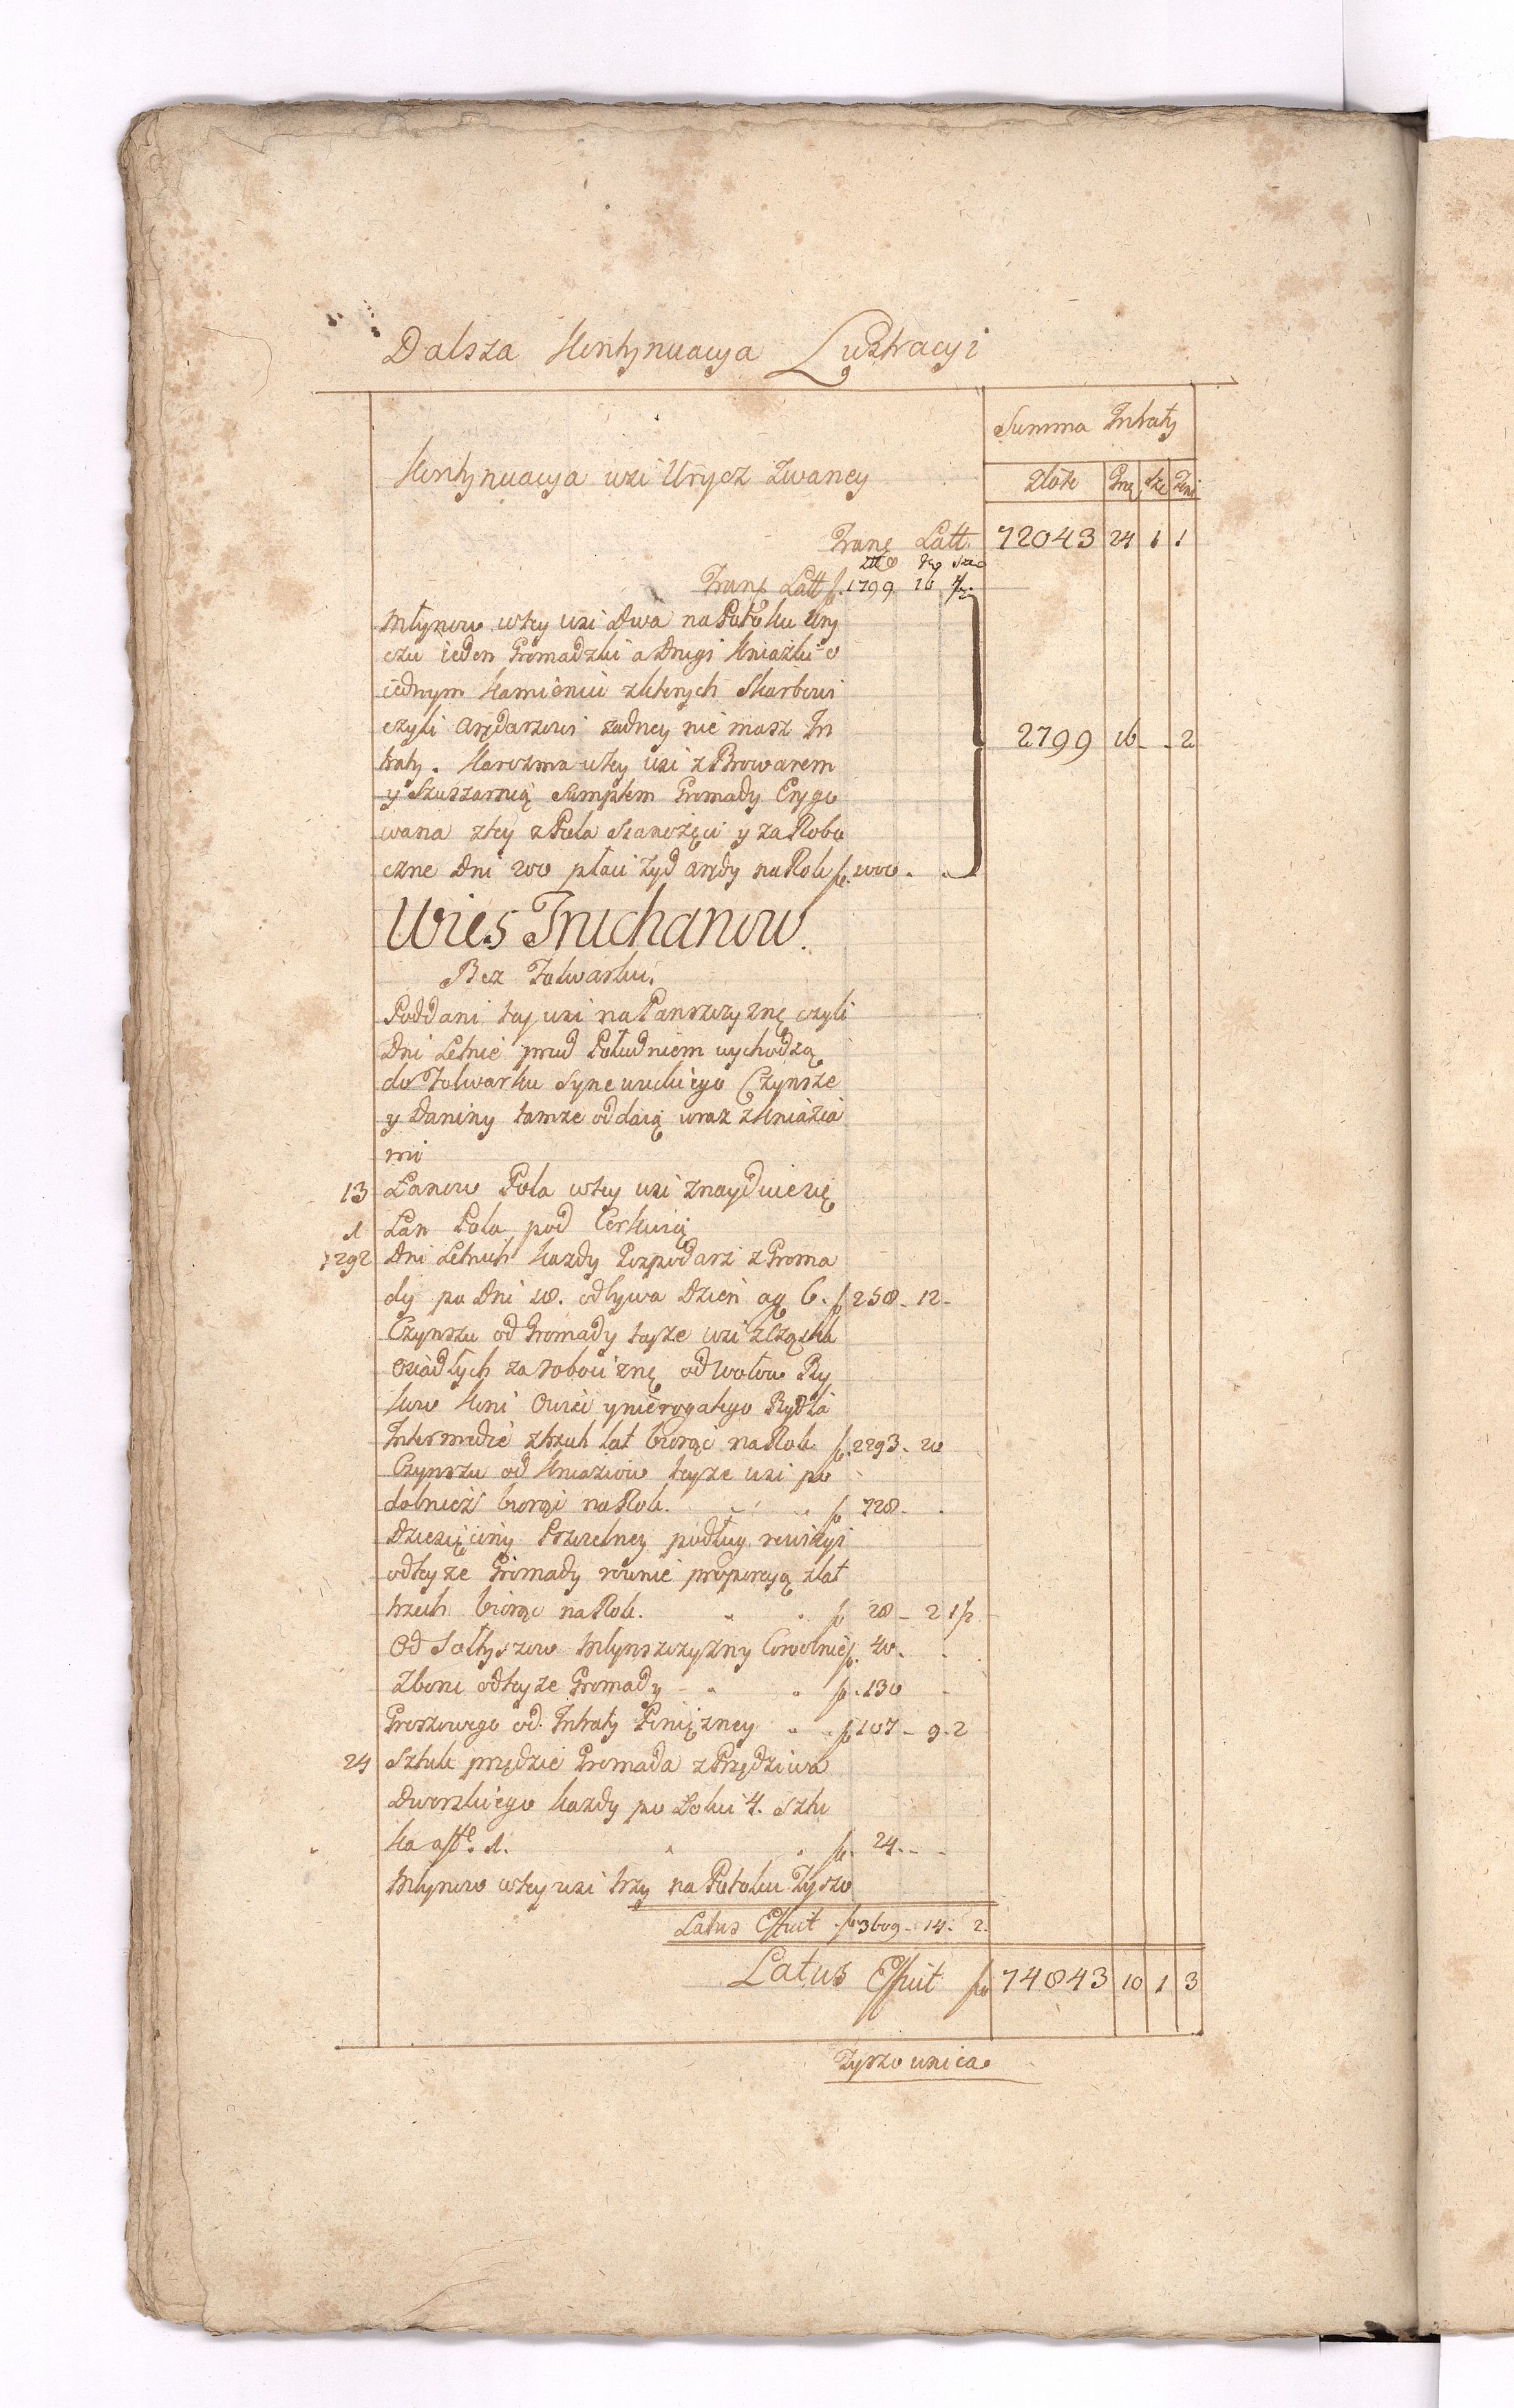 Dalsza Kontynuacya Lustracyi
Summa Intraty
Kontynuacya wsi Urycz zwaney
Złote Gro Sze Deni
Tranp Latt. 72043 24 1 1
Złte Gro Sze
Tranp Latt f. 1799 16 1/2
Młynow w tey wsi Dwa na Potoku Ury
czu ieden Gromadzki a Drugi Kniazki o
iednym Kamieniu z ktorych Skarbowi
czyli Arędarzowi zadney nie masz In
traty. Karczma w tey wsi z Browarem
y Szuszarnią Sumptem Gromady Erygo
wana z tey z Pola Sianożęci y za Robo
czne Dni 200 płaci Zyd arędy na Rok f. 1000.
2799 16 - 2
Wies Truchanow.
Bez Folwarku.
Poddani tey wsi na Panszczyznę czyli
Dni Letnie przed Południem wychodzą
do Folwarku Synewuckiego Czynsze
y Daniny tamze oddaią wraz z Kniazia
mi
13 Łanow Pola w tey wsi znayduie się
1 Łan Pola pod Cerkwią
1292 Dni Letnich kazdy Gospodarz z Groma
dy po Dni 18. odbywa Dzien a g 6. f 258 - 12 -
Czynszu od Gromady teyze wsi z Cząstek
osiadłych za robociznę od Wołow By
kow Koni Owiec y nierogatego Bydła
Intermedie z trzech lat biorąc na Rok f. 2293 - 20
Czynszu od Kniaziow teyze wsi po
dobniesz biorąc na Rok. f 728 -
Dziesięciny Pszczelney podług rewizyi
od teyze Gromady rownie proporcyą z lat
trzech biorąc na Rok. f 28 - 2 1/2
Od Sołtysow Młynszczyzny Corocznie f. 40.
Zboni od teyze Gromady f. 130
Groszowego od Intraty Pieniężney f 107 - 9 - 2
24 Sztuk przędzie Gromada z Przędziwa
Dworskiego kazdy po Łokci 4. Sztu
ka a ft. 1. f. 24. - -
Młynow w tey wsi trzy na Potoku Zyszo
Latus Efficit f 3609 - 14. 2.
Latus Efficit f 74843 10 1 3
Zyszownica